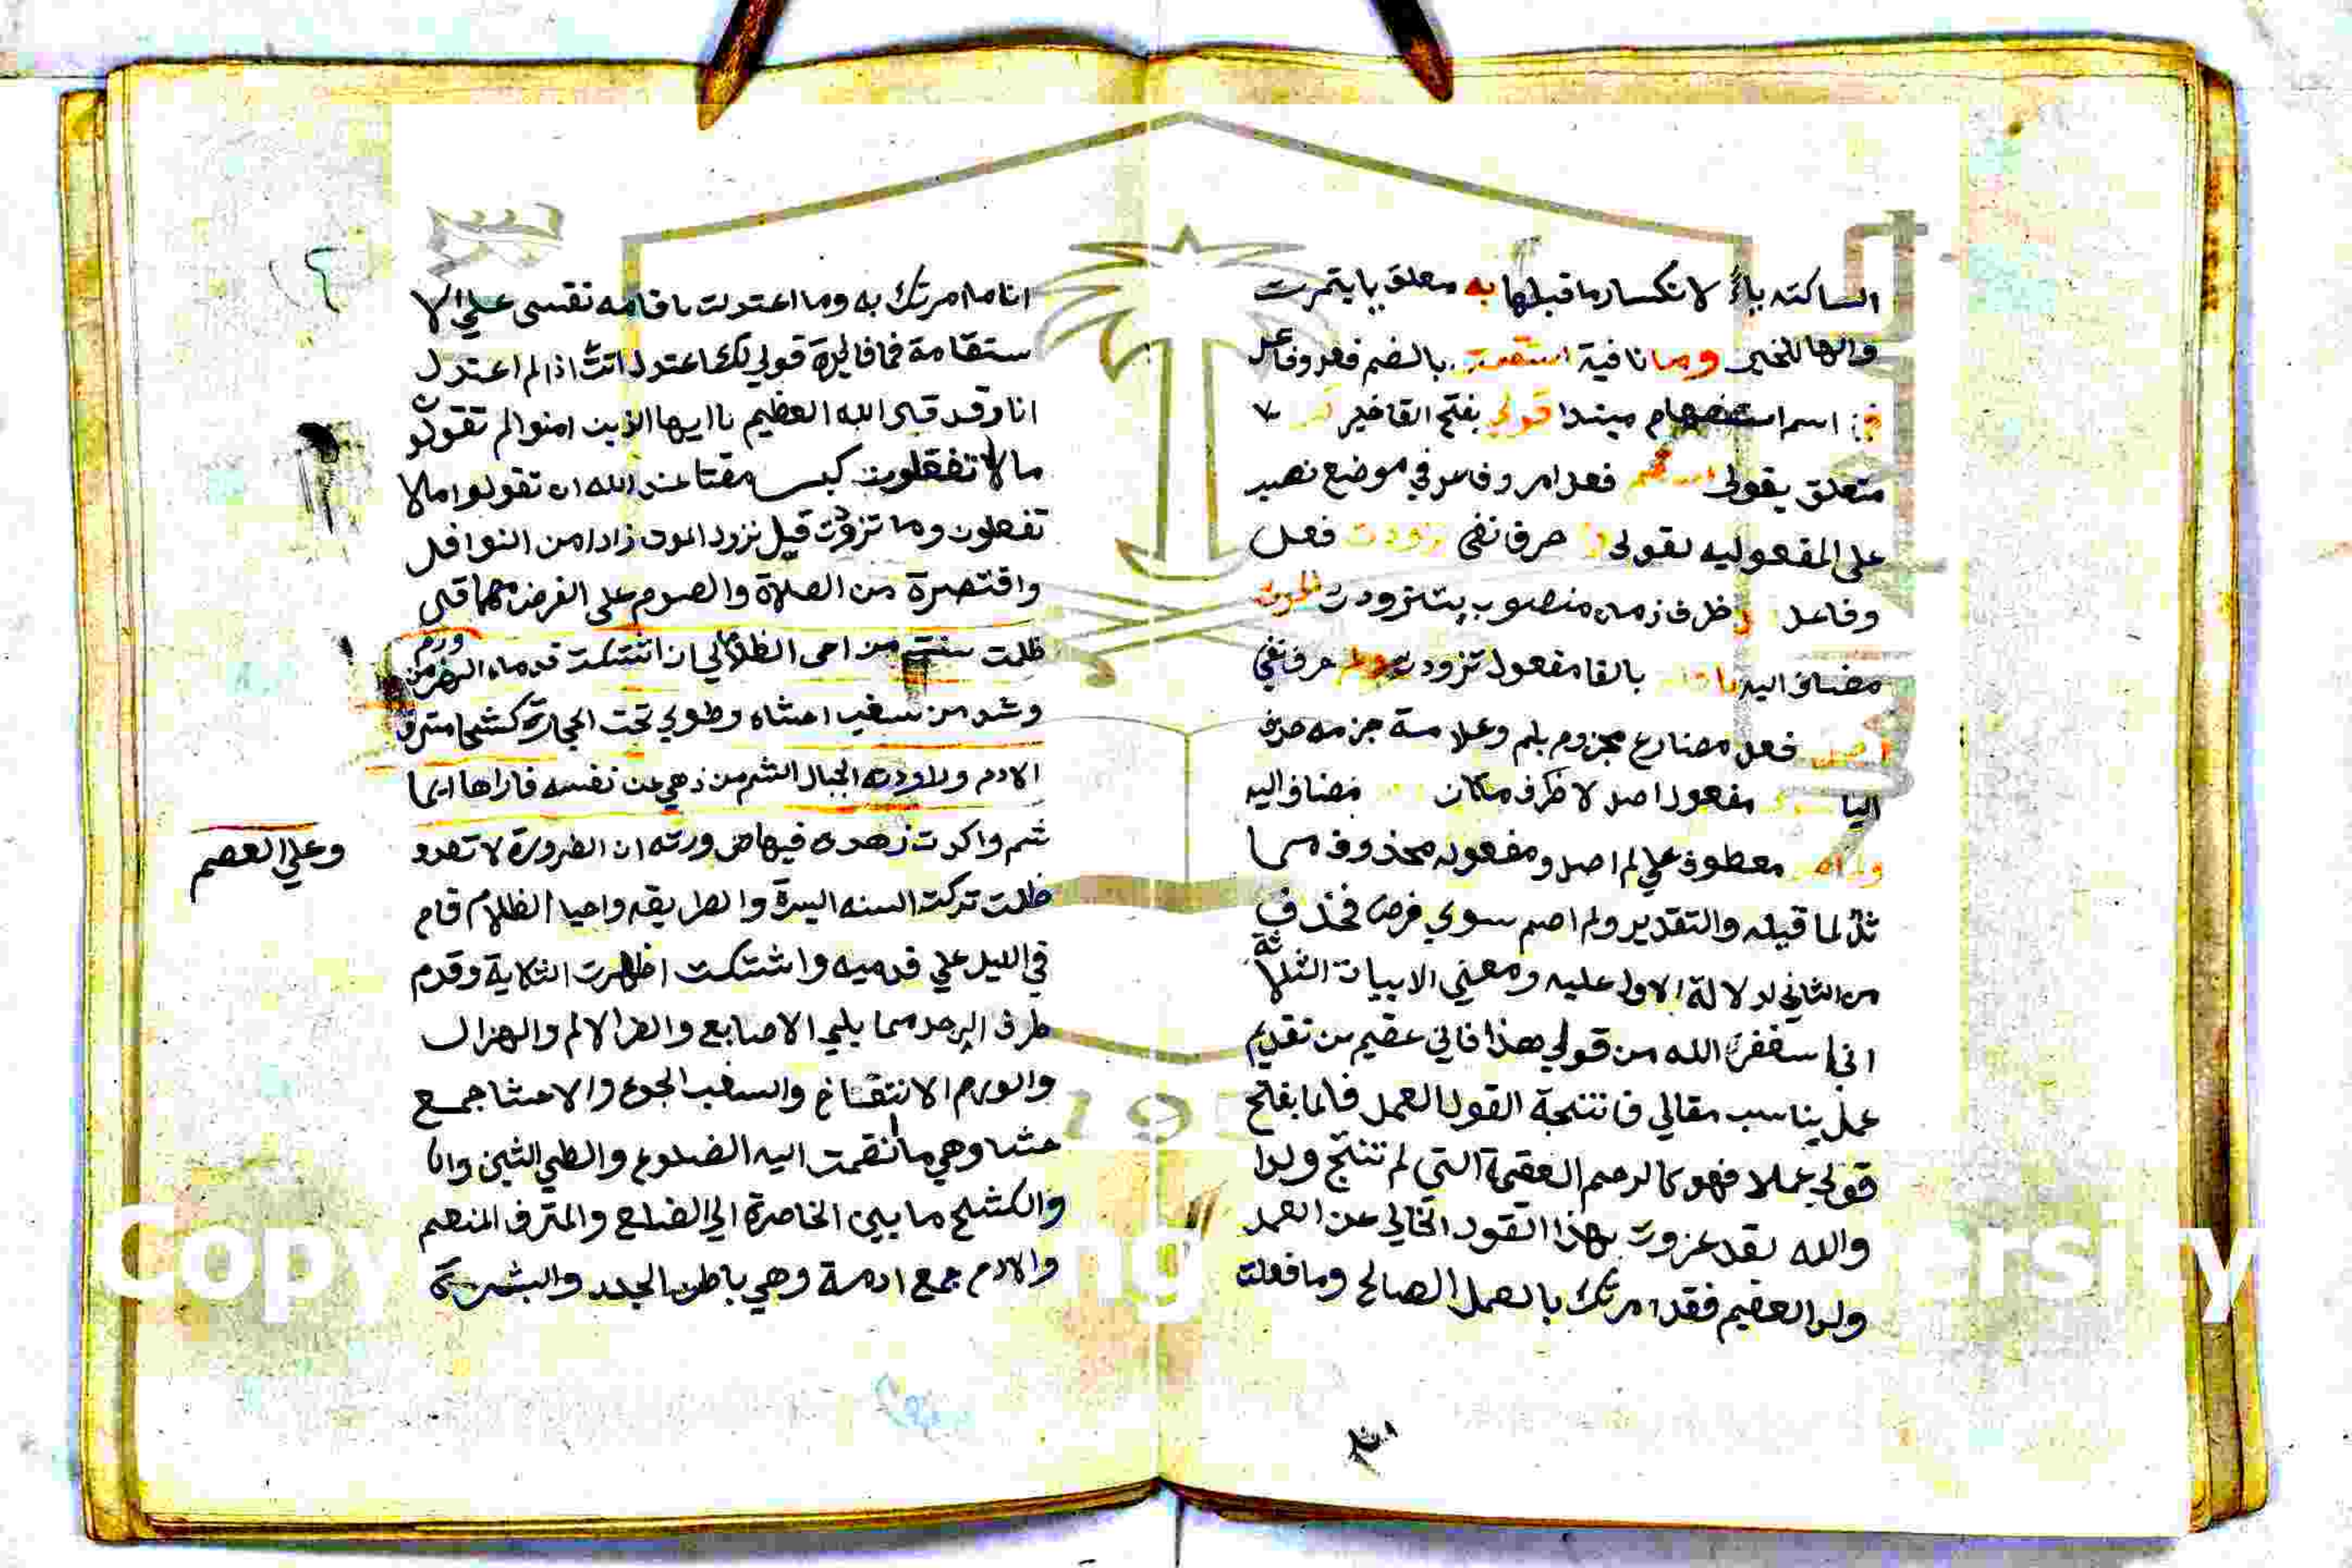 الساكنه ياءً لانكسار ما قبلها به معلق بايتمرت
والها للخير وما نافية استقمت بالضم فعل وفاعل
اسم استفهام مبتدا قولي بفتح القا خبر
متعلق بقولي فعل امر وفاعل في موضع نصب
على المفعوليه لقولي حرف نفي زودت فعل
وفاعل ظرف زمان منصوب بتزودت الموت
مضاف اليه بالفا مفعول تزودت ولم حرف نفي
اصل فعل مضارع مجزوم بلم وعلامة جزمه حذف
اليا مفعول اصل لا ظرف مكان مضاف اليه
ولم معطوف علي لم اصل ومفعوله محذوف مما
ثل لما قبله والتقدير ولم اصم سوي فرض فحذف
من الثاني لدلالة الاول عليه ومعني الابيات الثلاثة
اني استغفر الله من قولي هذا فاني عقيم من تقديم
عمل يناسب مقالي فانتيجة القول العمل فلما بفلح
قولي عملا فهو كالرحم العقيمة التي لم تنتج ولدا
والله لقد عزوت بهذا القول الخالي عن العمل
ولد العقيم فقد امرتك بالعمل الصالح وما فعلت
انا ما امرتك به وما اعتدلت باقامه نفسى علي الا
ستقامة فما فايدة قولي لك اعتدل انت اذا لم اعتدل
انا وقد قال الله العظيم يا ايها الذين امنوا لم تقولون
ما لا تفعلون كبر مقتا عند الله ان تقولوا ما لا
تفعلون وما تزودت قبل نزول الموت زادا من النوافل
واقتصرة من الصلاة والصوم على الفرض مما قال
ظلمت سنة من احى الظلام الي ان اشتكت قدماه الضر من ورم
وشد من سغب احشاه وطوي تحت الحجارة كشحا مترف
الادم وراودته الجبال الشم من ذهب عن نفسه فاراها ايما
شمم واكدت زهده فيها ضرورته ان الضرورة لا تعدو
وعلي العصم
ظلمت تركت السنه السيرة والطريقه واحيا الظلام قام
في الليل علي قدميه واشتكت اظهرت الشكاية وقدم
طرف الرجل مما يلي الاصابع والضر الالم والهزال
والورم الانتفاخ والسغب الجوع والاحشا جمع
حشا وهي ما انقمت اليه الضلوع والطي الثني
والكشح ما بين الخاصرة الي الضلع والمترف المنعم
والادم جمع ادمة وهي باطن الجلد والبشرة